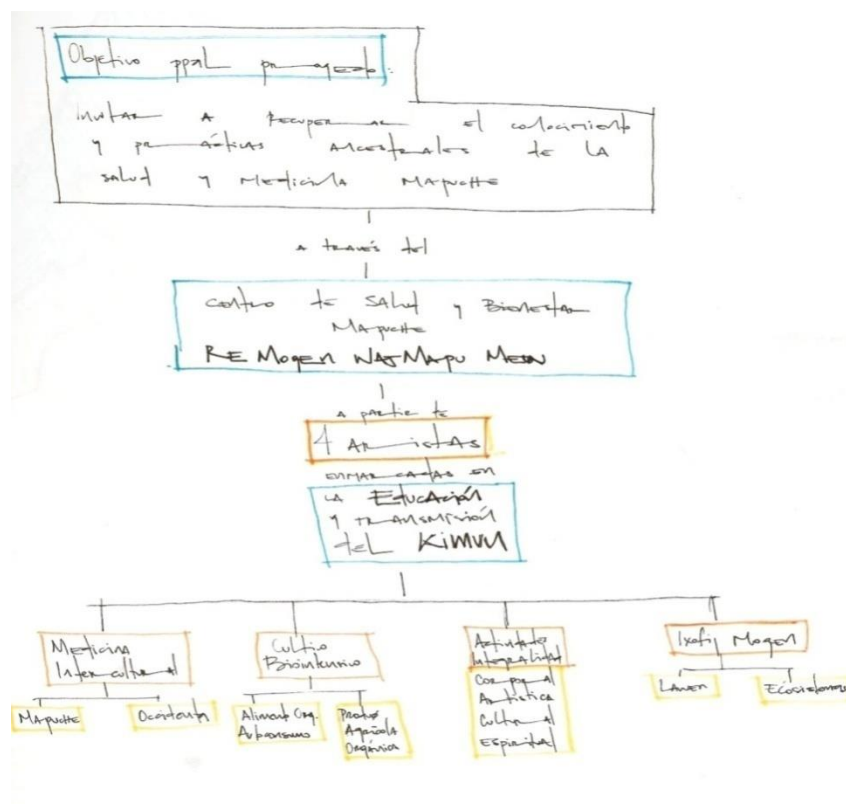 Objetivo ppal proyecto:
Invitar a recuperar el conocimiento
y prácticas ancestrales de la
salud y medicina mapuche
a través del
Centro de salud y Bienestar
Mapuche
RE Mogen Nag Mapu Mew
a partir de
4 Aristas
enmarcadas en
la Educación
y transmisión
del Kimun
Medicina
Intercultural
Mapuche
Occidental
Cultivo
Biointensivo
Aliment Org.
Autoconsumo
Prod
Agrícola
Orgánica
Integralidad
Corporal
Artística
Cultural
Espiritual
Ixofij Mogen
Lawen